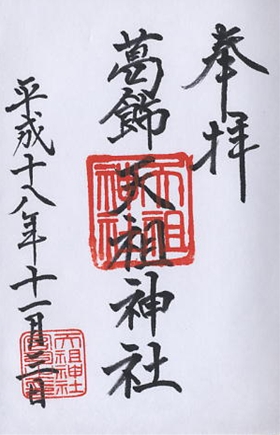 奉拝
葛飾天祖神社
平成十八年十一月三日
天祖神社